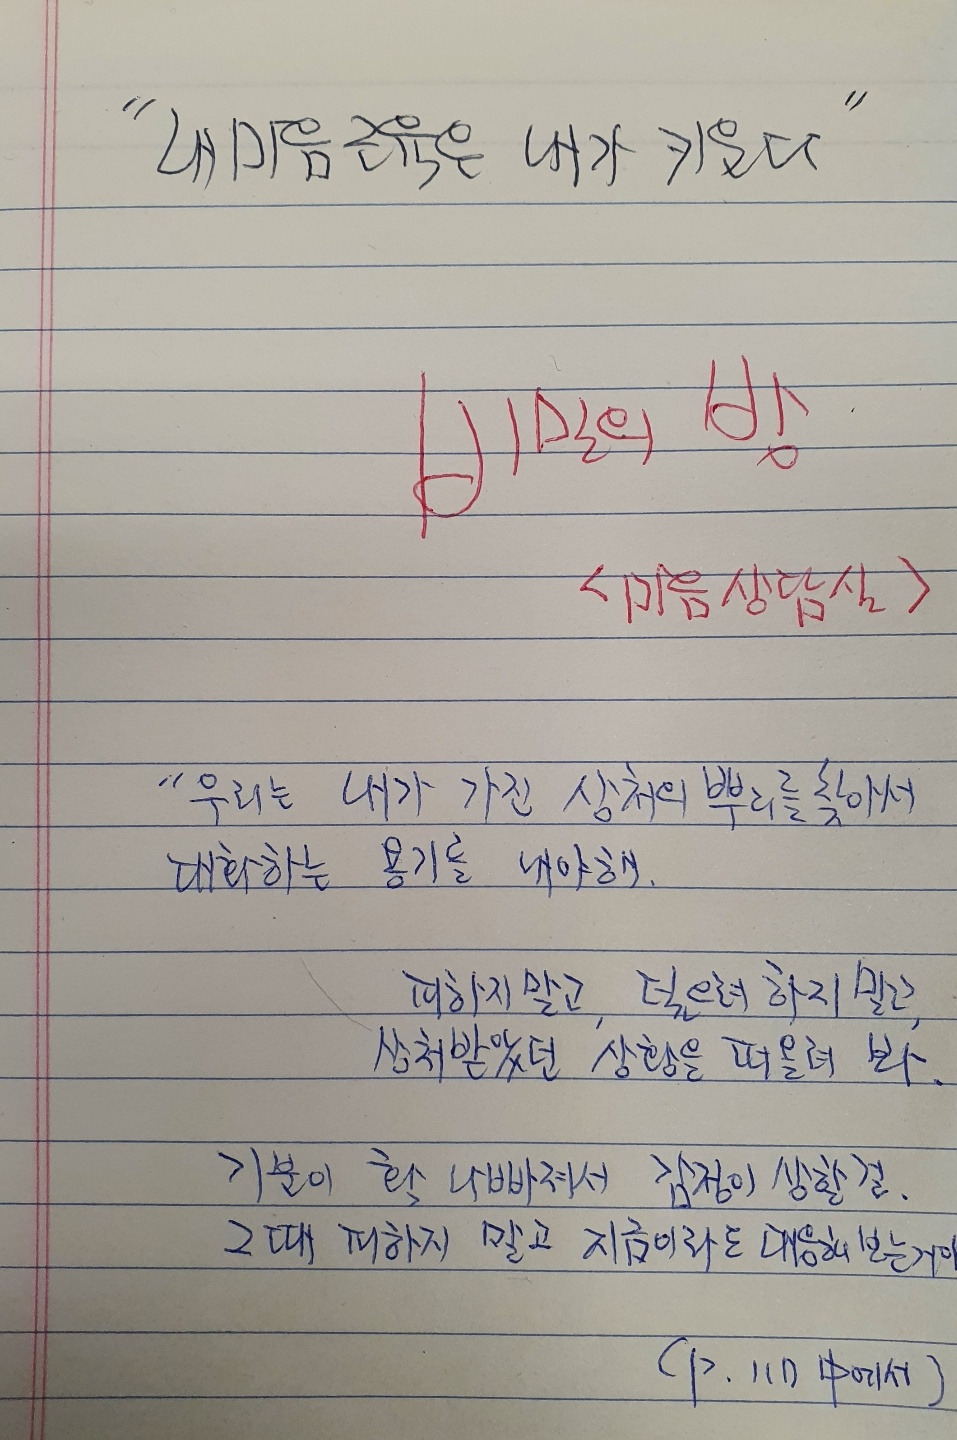 "내 마음 근육은 내가 키운다"
비밀의 방
<마음 상담실>
"우리는 내가 가진 상처의 뿌리를 찾아서
대화하는 용기를 내야 해.
피하지 말고, 덮으려 하지 말고,
상처받았던 상황을 떠올려 봐.
기분이 확 나빠져서 감정이 상할걸.
그때 피하지 말고 지금이라도 대응해 보는 거야
(p. 117 中에서)